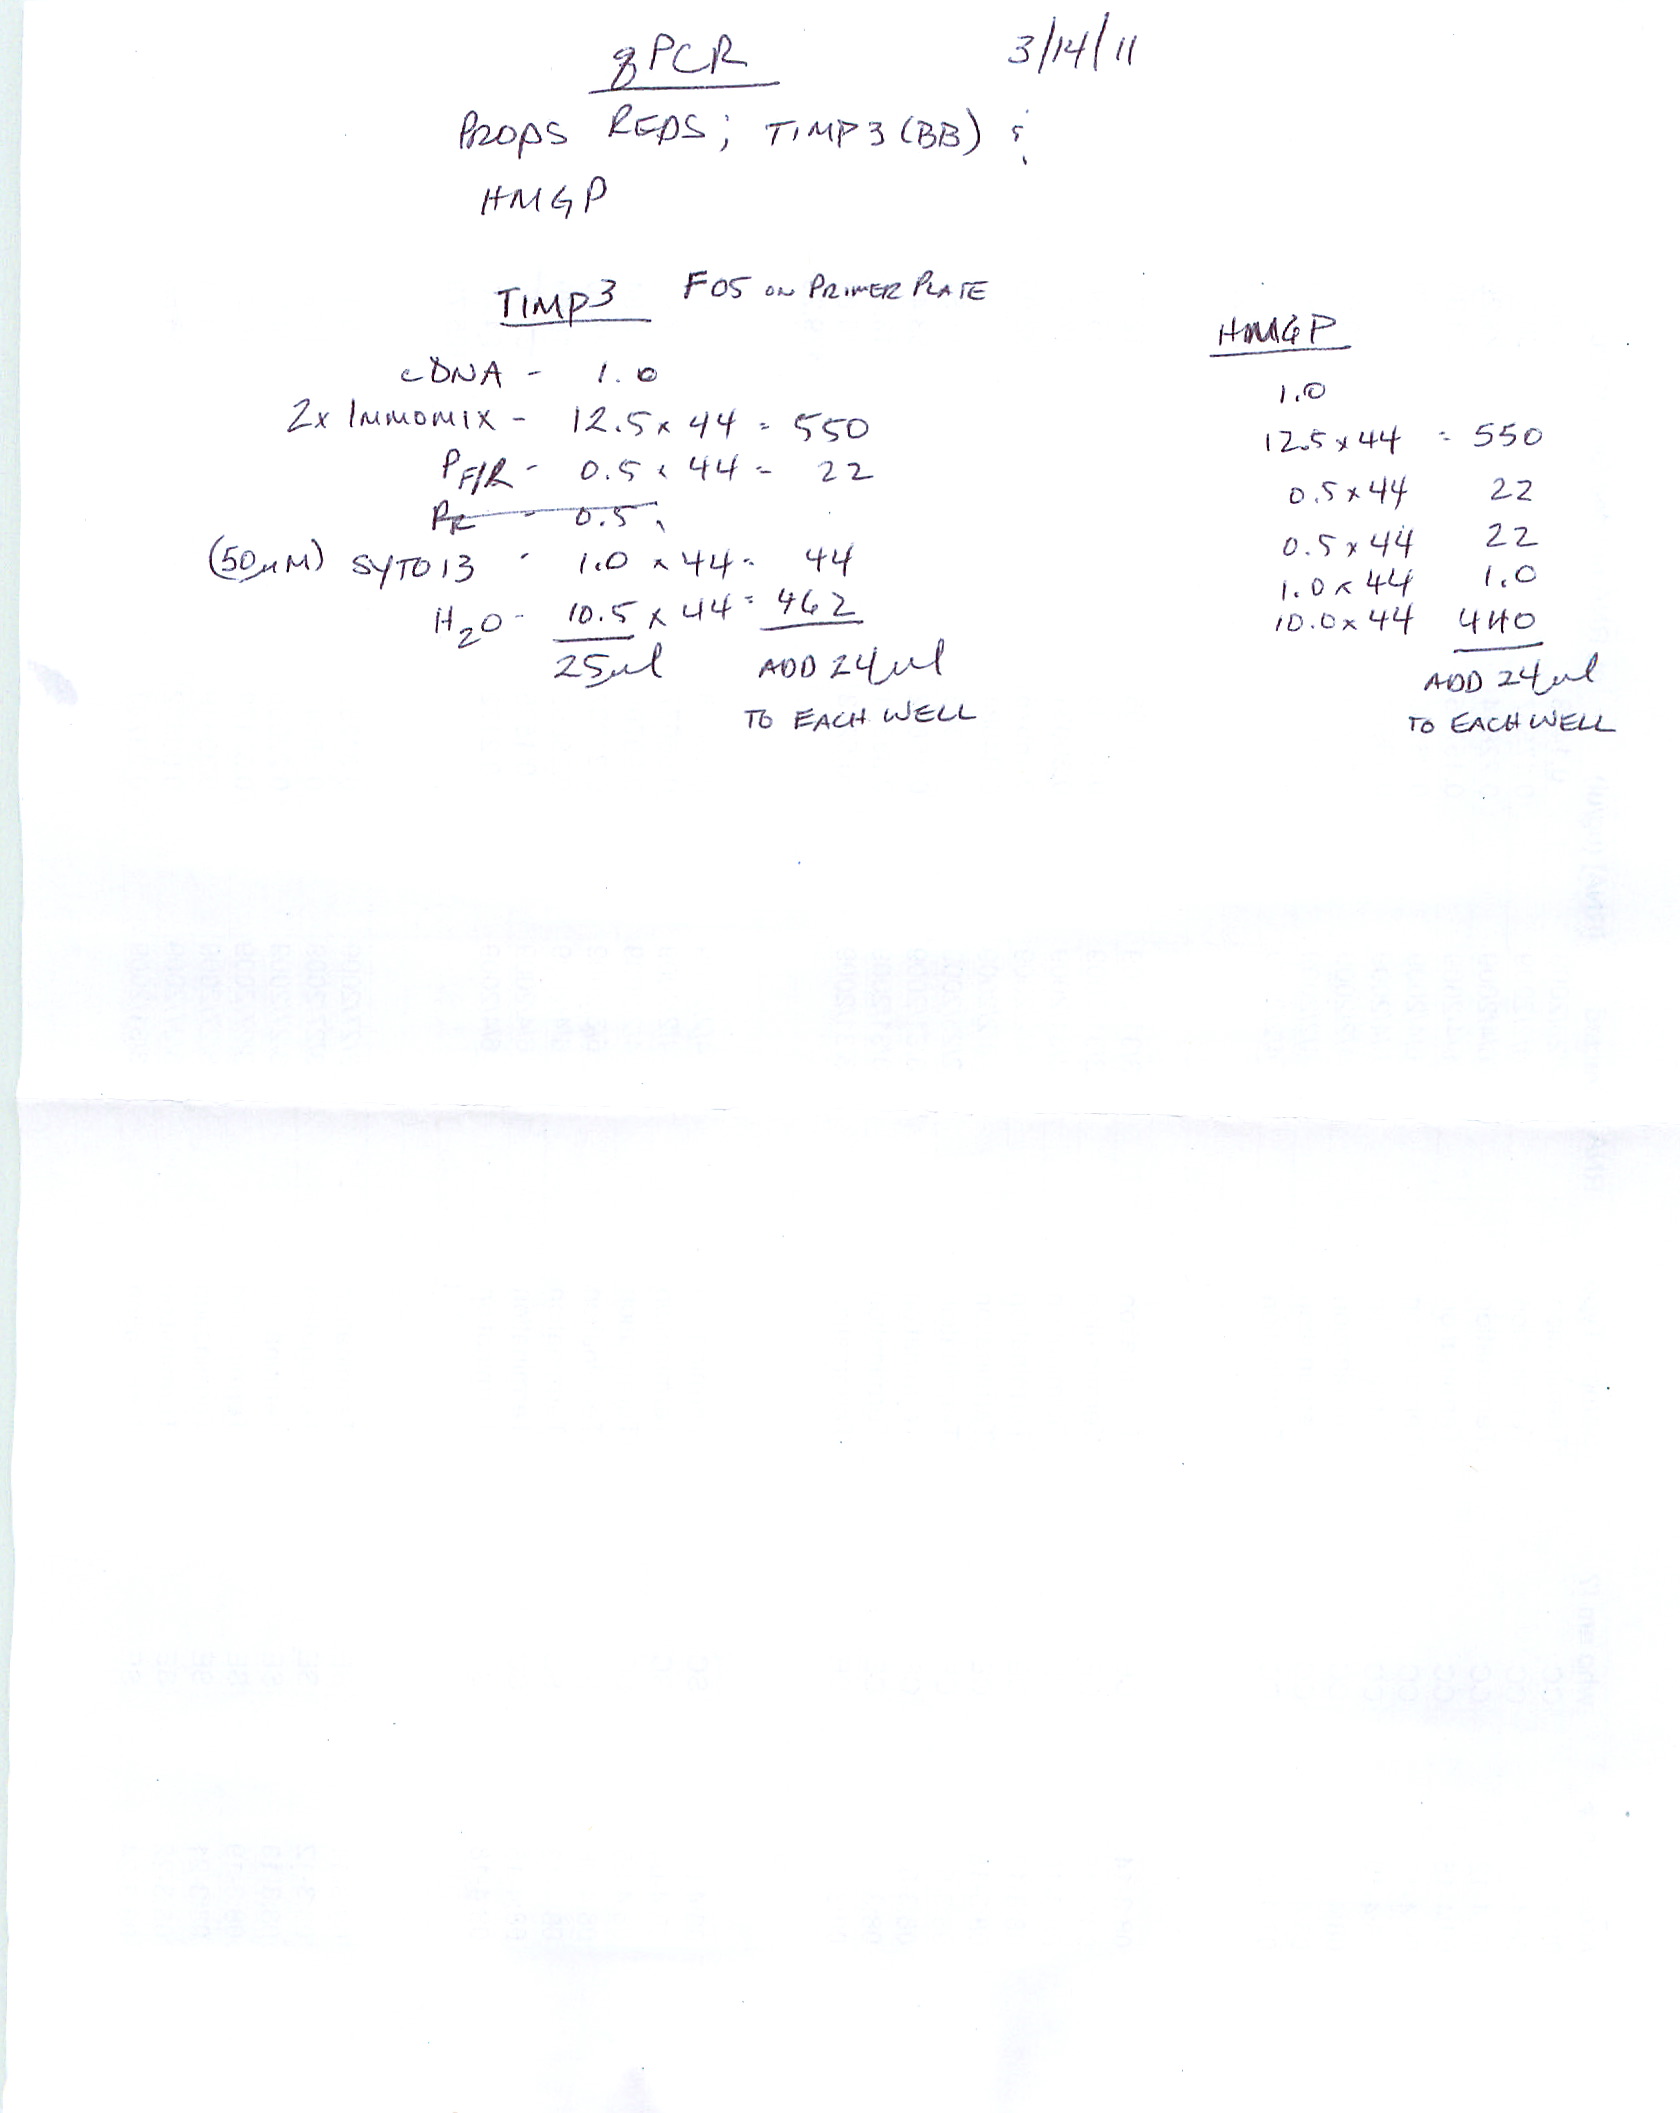 qPCR 3/14/11
PROPS REDS; TIMP3 (BB) &
HMGP
TIMP3 F05 ON PRIMER PLATE
cDNA - 1.0
2x IMMOMIX - 12.5 x 44 = 550
PF/R - 0.5 x 44 = 22
PR - 0.5
(50uM) SYTO 13 - 1.0 x 44 = 44
H2O - 10.5 x 44 = 462
25ul ADD 24ul
TO EACH WELL
HMGP
1.0
12.5 x 44 = 550
0.5 x 44 22
0.5 x 44 22
1.0 x 44 1.0
10.0 x 44 440
ADD 24ul
TO EACH WELL